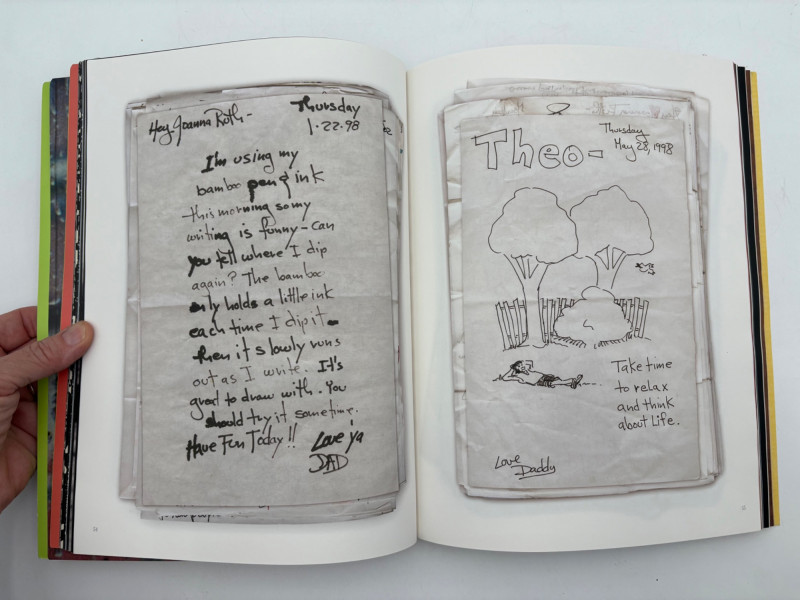 Hey Joanna Ruth-
Thursday
1·22·98
I'm using my
bamboo pen & ink
this morning so my
writing is funny - can
you tell where I dip
again? The bamboo
only holds a little ink
each time I dip it -
then it slowly runs
out as I write. It's
great to draw with. You
should try it sometime.
Have Fun Today!!
Love ya
DAD
Theo-
Thursday
May 28, 1998
Take time
to relax
and think
about Life.
Love
Daddy